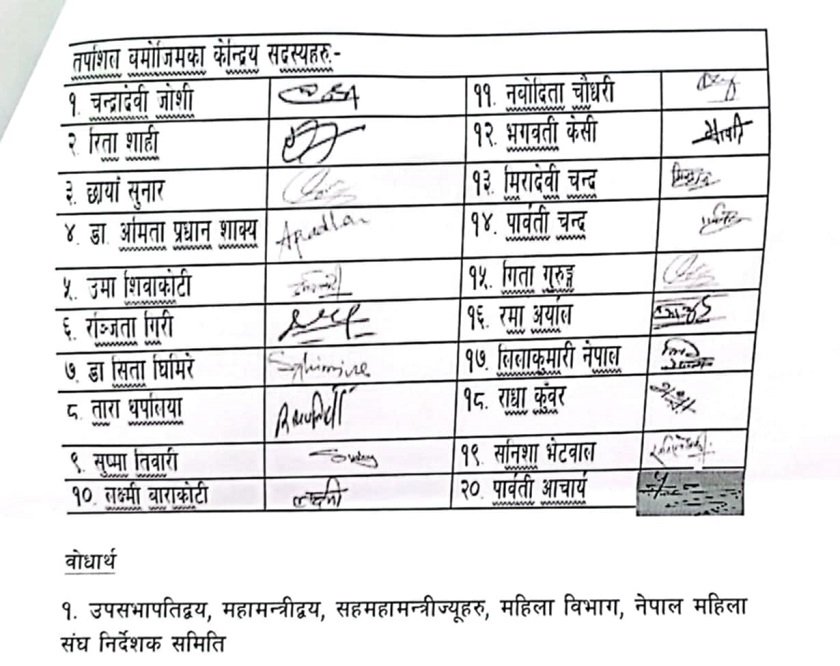 तपशिल वमोजिमका केन्द्रिय सदस्यहरु:-
१. चन्द्रादेवी जोशी
११. नवोदिता चौधरी
२ रिता शाही
१२. भगवती केसी
३. छायां सुनार
१३. मिरादेवी चन्द
४. डा. अमिता प्रधान शाक्य
Apradhan
१४. पार्वती चन्द
५. उमा शिवाकोटी
१५. गिता गुरुङ्ग
६. रञ्जिता गिरी
१६. रमा अर्याल
७. डा सिता घिमिरे
Sghimire
१७. लिलाकुमारी नेपाल
८. तारा थपलिया
१८. राधा कुंवर
९. सुष्मा तिवारी
१९. सनिशा भेटवाल
१०. लक्ष्मी बाराकोटी
लक्ष्मी
२०. पार्वती आचार्य
वोधार्थ
१. उपसभापतिद्वय, महामन्त्रीद्वय, सहमहामन्त्रीज्यूहरु, महिला विभाग, नेपाल महिला
संघ निर्देशक समिति